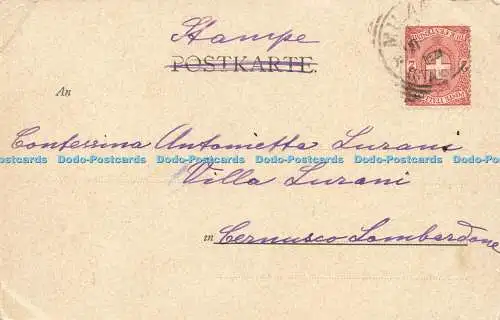 Stampe
POSTKARTE.
An
Contessina Antonietta Lurani
Dodo-Postcards Dodo-Postcards Dodo-Postcards Dodo-Postcards Dodo-Postcards
Villa Lurani
in Cernusco Lombardone